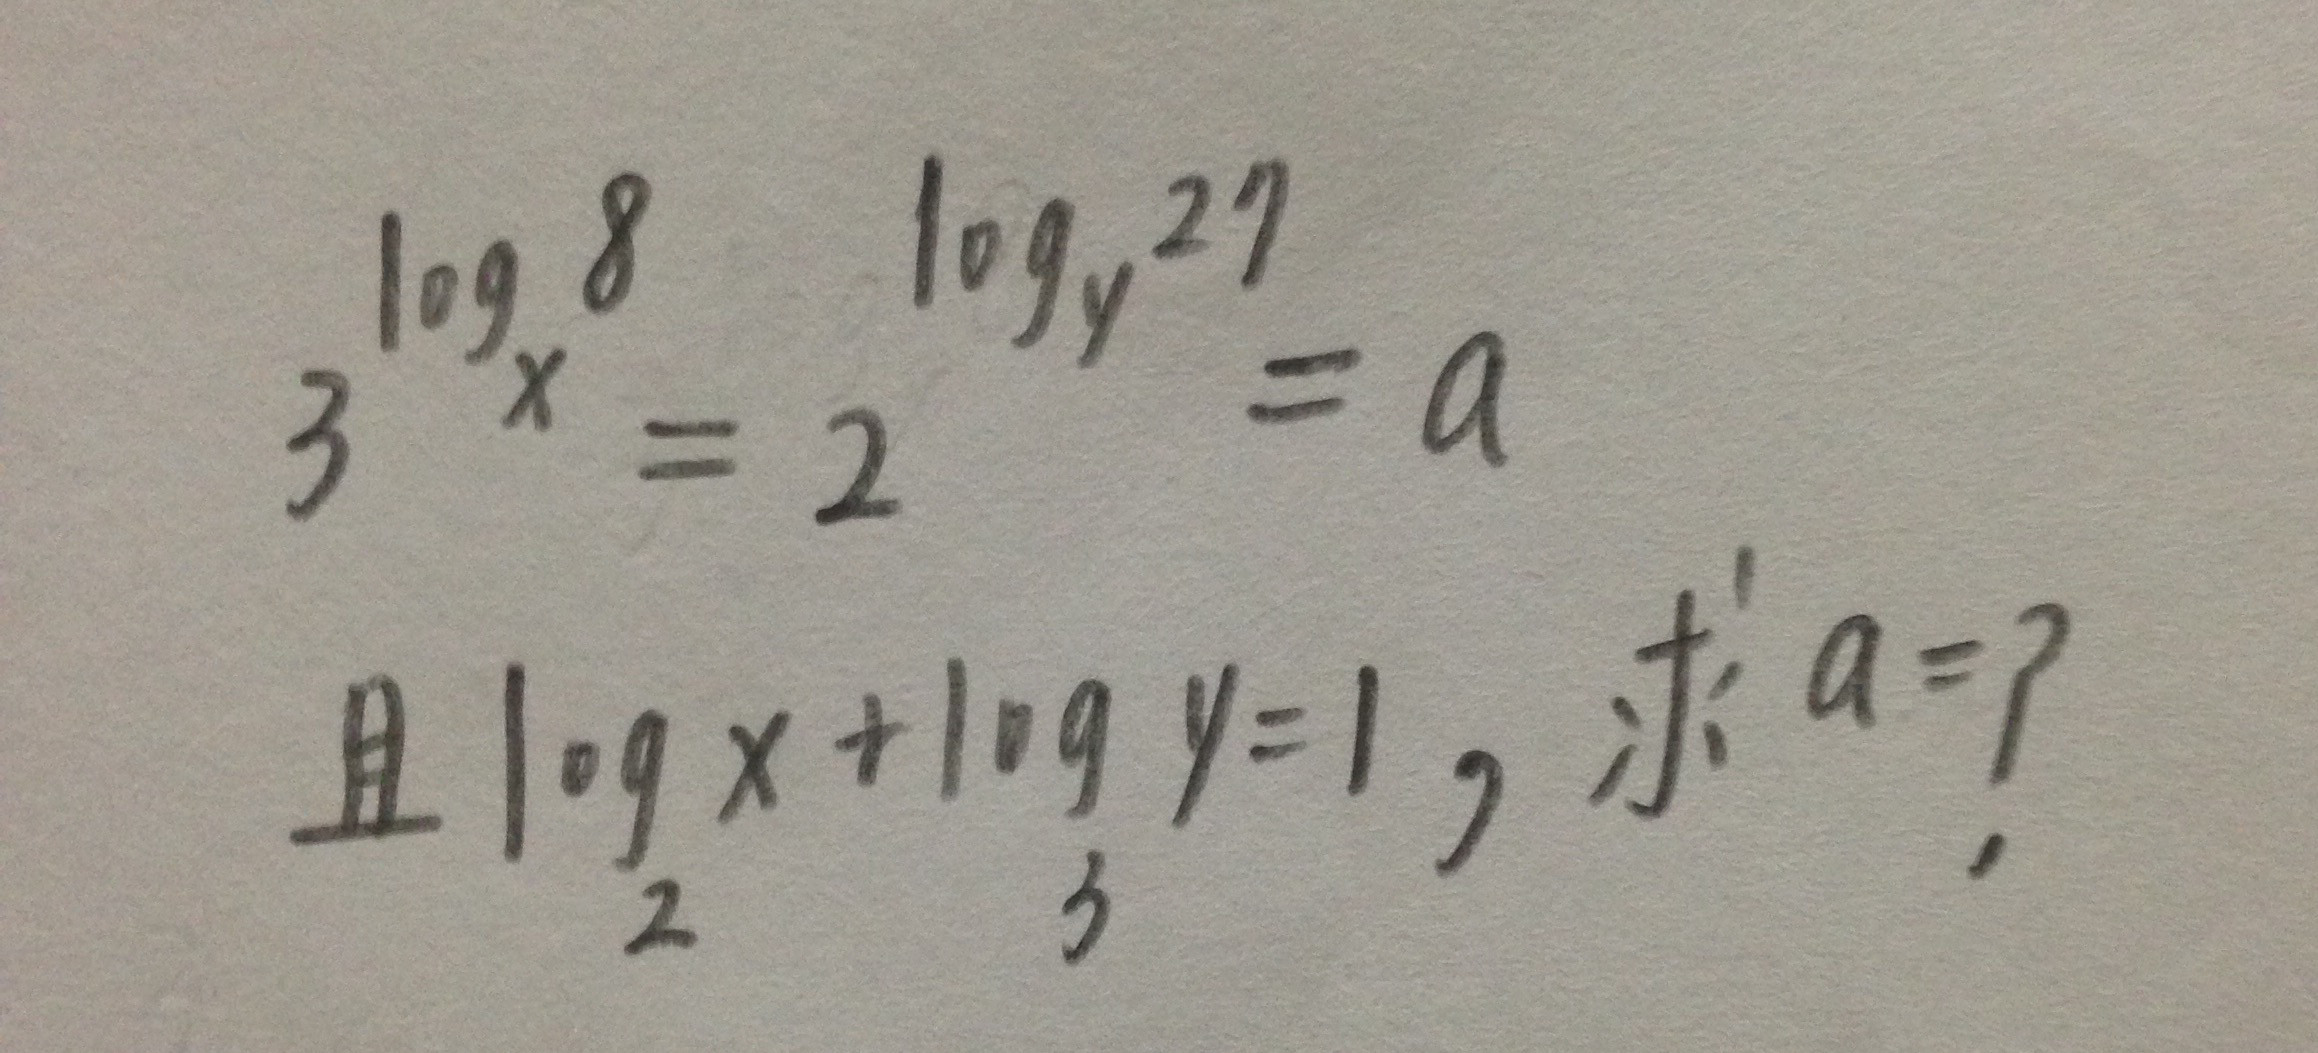 3^{log_x 8} = 2^{log_y 27} = a
且 log_2 x + log_3 y = 1 , 求 a = ?